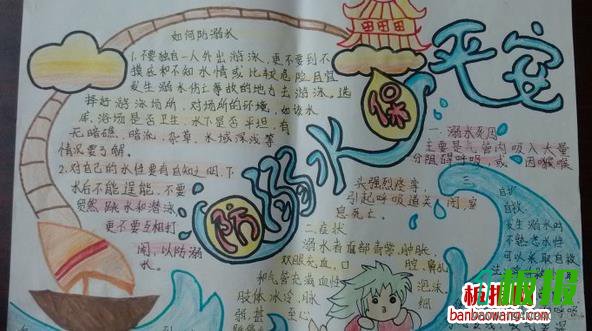 如何防溺水
1.不要独自一人外出游泳,更不要到不
摸底和不知水情或比较危险且宜
发生溺水伤亡事故的地方去游泳。选
择好游泳场所,对场所的环境,如该水
库、浴场是否卫生,水下是否平坦,有
无暗礁、暗流、杂草,水域深浅等
情况要了解。
2.对自己的水性要有自知之明,下
水后不能逞能,不要
贸然跳水和潜泳
更不要互相打
闹,以防溺
水。
防溺水保平安
一、溺水死因
主要是气管内吸入大量
分阻碍呼吸,或因喉头强烈痉挛,
引起呼吸道关闭,窒
息死亡。
二、症状
溺水者面部青紫、肿胀、
双眼充血,口腔、鼻孔
和气管充满血性泡沫
肢体冰冷,脉细
弱,甚至心
三、
自救
发生溺水时
不熟悉水性
可以采取自救
板报网
banbaowang.com